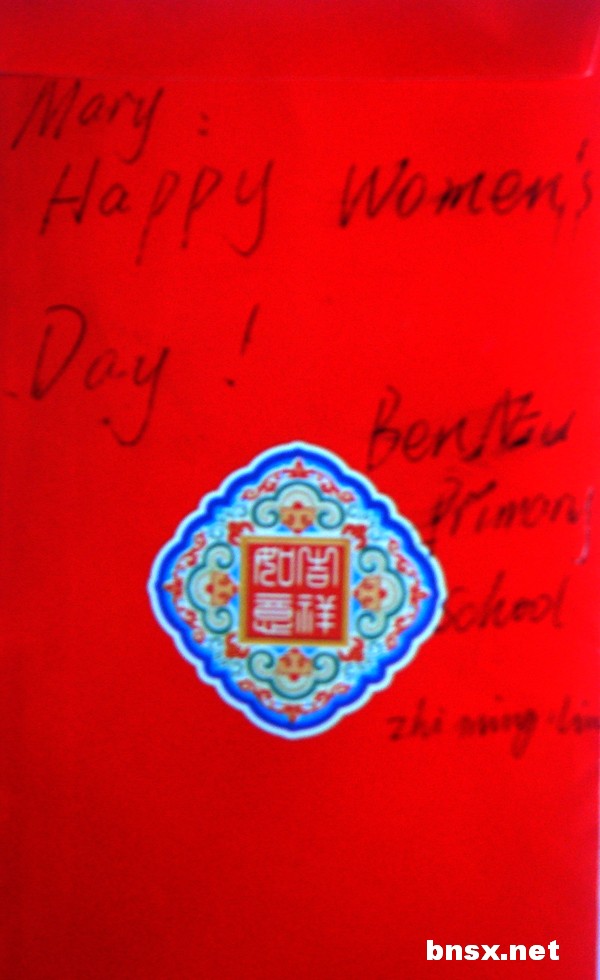 Mary:
Happy Women's
Day!
Primary
School
zhi ming lin
吉祥
如意
bnsx.net